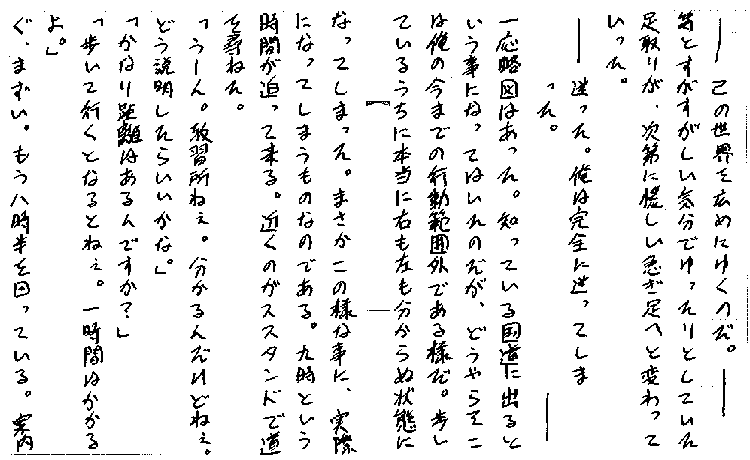 ―― この世界を広めにゆくのだ。――
等とすがすがしい気分でゆったりとしていた
足取りが、次第に慌しい急ぎ足へと変わって
いった。
―― 迷った。俺は完全に迷ってしま
った。 ――
一応略図はあった。知っている国道に出ると
いう事になってはいたのだが、どうやらそこ
は俺の今までの行動範囲外である様だ。歩い
ているうちに本当に右も左も分からぬ状態に
なってしまった。まさかこの様な事に、実際
になってしまうものなのである。九時という
時間が迫って来る。近くのガススタンドで道
を尋ねた。
「うーん。教習所ねぇ。分かるんだけどねぇ。
どう説明したらいいかな。」
「かなり距離はあるんですか?」
「歩いて行くとなるとねぇ。一時間はかかる
よ。」
ぐ、まずい。もう八時半を回っている。案内